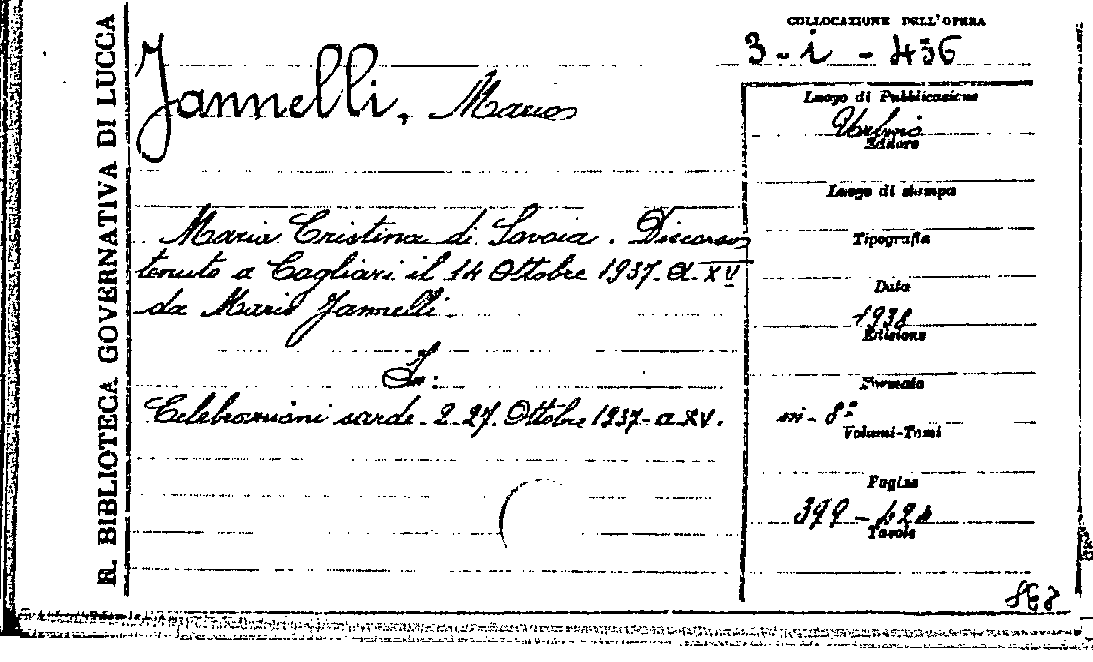 R. BIBLIOTECA GOVERNATIVA DI LUCCA
COLLOCAZIONE DELL'OPERA
3 - i - 436
Jannelli, Mario
Maria Cristina di Savoia. Discorso
tenuto a Cagliari il 14 Ottobre 1937. a. XV
da Mario Jannelli.
In:
Celebrazioni sarde. 2-27. Ottobre 1937-a.XV.
Luogo di Pubblicazione
Urbino
Editore
Luogo di stampa
Tipografia
Data
1938
Edizione
Formato
in-8º
Volumi-Tomi
Pagine
399 -
Tavole